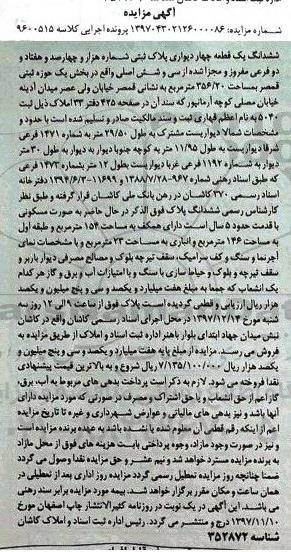 آگهی مزایده
شماره مزایده: ۱۳۹۷۰۴۳۰۲۱۲۶۰۰۰۰۸۶ پرونده اجرایی کلاسه ۹۶۰۰۵۱۵
ششدانگ یک قطعه چهار دیواری پلاک ثبتی شماره هزار و چهارصد و هفتاد و
دو فرعی مفروز و مجزا شده از سی و شش اصلی واقع در بخش یک حوزه ثبتی
قمصر به مساحت ۳۵۶/۲۰ مترمربع به نشانی قمصر خیابان ولی عصر میدان آدینه
خیابان مصلی کوچه آرمانپور که سند آن در صفحه ۴۲۵ دفتر ۳۳ املاک ذیل ثبت
۵۰۴۰ به نام اعظم قهاری ثبت و سند مالکیت صادر و تسلیم شده است با حدود و
مشخصات شمالا دیواریست مشترک به طول ۲۹/۵۰ متر به شماره ۱۴۷۱ فرعی
شرقا دیواریست به طول ۱۱/۹۵ متر به کوچه جنوبا دیوار به دیوار به طول ۳۰ متر
دیوار به شماره ۱۱۹۲ فرعی غربا دیواریست بطول ۱۲ متر بشماره ۱۴۷۳ فرعی
که طبق اسناد رهنی شماره ۹۶۷-۱۳۸۸/۷/۲۸ و ۱۱۶۹۹-۱۳۹۴/۶/۳ دفترخانه
اسناد رسمی ۳۷۰ کاشان در رهن بانک ملی کاشان قرار گرفته و طبق نظر
کارشناس رسمی ششدانگ پلاک فوق الذکر در حال حاضر به صورت مسکونی
با قدمت حدود ۵ سال است دارای همکف به مساحت ۱۵۴ مترمربع و طبقه اول
به مساحت ۱۴۶ مترمربع و انباری به مساحت ۲۳ مترمربع و با مشخصات نمای
آجرنما و سنگ و کف سرامیک، سقف تیرچه و بلوک و مصالح مصرفی دیوار باربر و
سقف تیرچه و بلوک و حیاط سازی با سنگ و با امتیازات آب و برق و گاز هر کدام
یک انشعاب که جمعا به مبلغ هفت میلیارد و یکصد و سی و پنج میلیون و یکصد
هزار ریال ارزیابی و قطعی گردیده است پلاک فوق از ساعت ۹ الی ۱۲ روز سه
شنبه مورخ ۱۳۹۷/۱۲/۱۴ در محل اجرای اسناد رسمی کاشان واقع در کاشان
نبش میدان جهاد ابتدای بلوار باهنر اداره ثبت اسناد و املاک از طریق مزایده به
فروش می رسد. مزایده از مبلغ پایه هفت میلیارد و یکصد و سی و پنج میلیون و
یکصد هزار ریال ۷/۱۳۵/۱۰۰/۰۰۰ ریال شروع و به بالاترین قیمت پیشنهادی
نقدا فروخته می شود. لازم به ذکر است پرداخت بدهی های مربوط به آب، برق،
گاز اعم از حق انشعاب و یا حق اشتراک و مصرف در صورتی که مورد مزایده دارای
آنها باشد و نیز بدهی های مالیاتی و عوارض شهرداری و غیره تا تاریخ مزایده
اعم از اینکه رقم قطعی آن معلوم شده یا نشده باشد به عهده برنده مزایده است
و نیز در صورت وجود مازاد، وجوه پرداختی بابت هزینه های فوق از محل مازاد
به برنده مزایده مسترد خواهد شد و نیم عشر و حق مزایده نقدا وصول می گردد
ضمنا چنانچه روز مزایده تعطیل رسمی گردد مزایده روز اداری بعد از تعطیلی در
همان ساعت و مکان مقرر برگزار خواهد شد. بیمه مورد مزایده برابر سند رهنی
می باشد. این آگهی در یک نوبت در روزنامه کثیرالانتشار چاپ اصفهان مورخ
۱۳۹۷/۱۱/۱۰ درج و منتشر می گردد. رئیس اداره ثبت اسناد و املاک کاشان
شناسه ۳۵۲۸۷۲